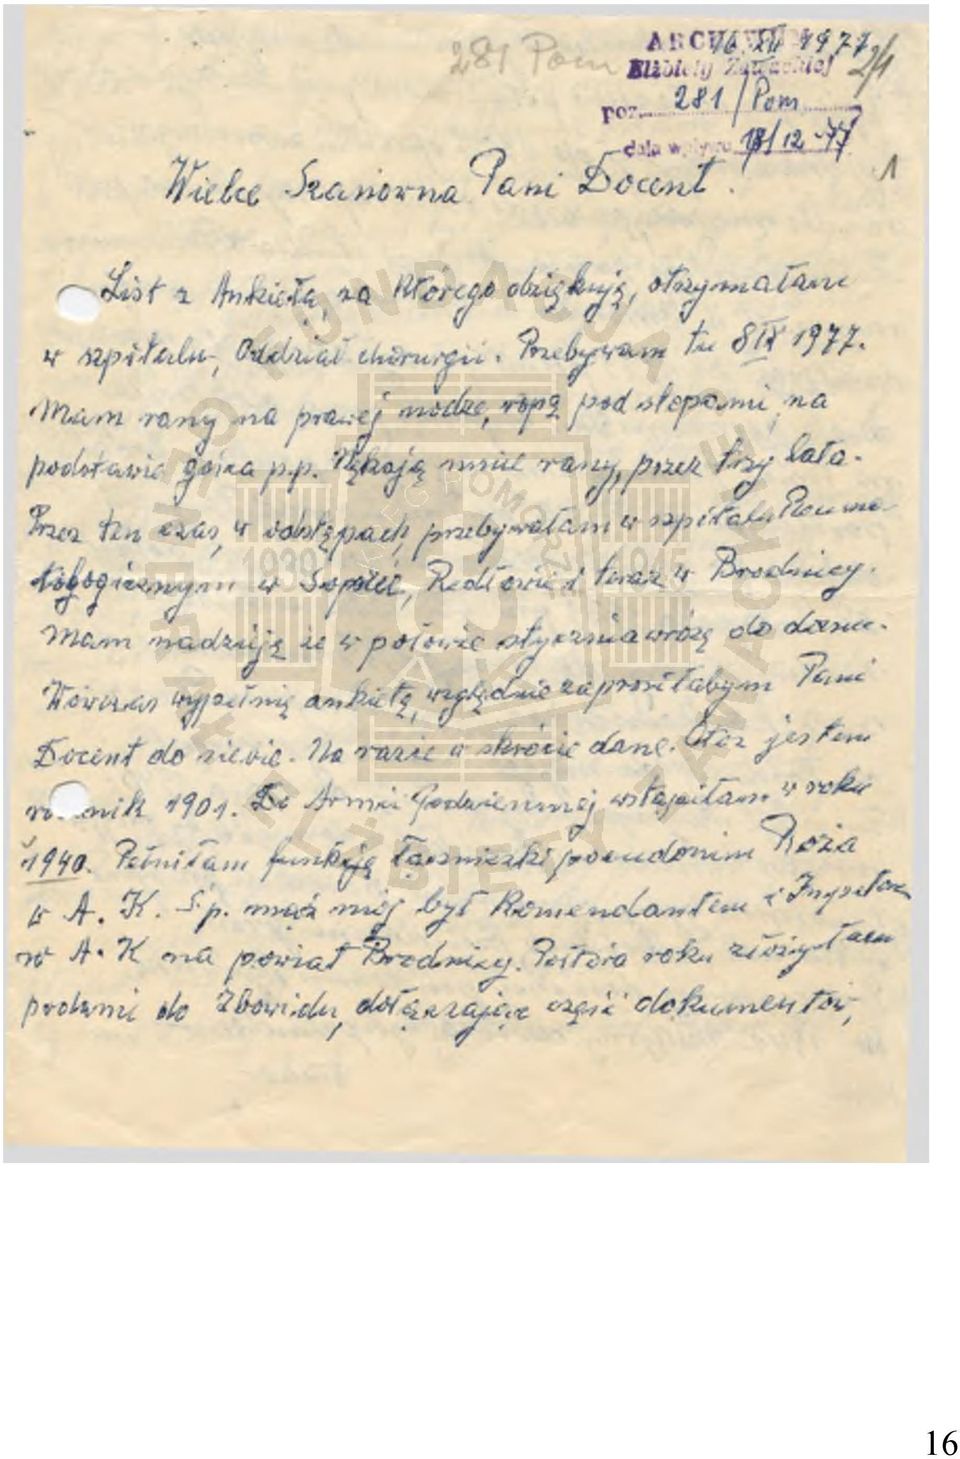 281 Pom
16 XII 1977
ARCHIWUM
Elżbiety Zawackiej
24
poz. 281/Pom
data wpływu 18/12-77
1
Wielce Szanowna Pani Docent!
List z Ankietą, za którego dziękuję, otrzymałam
w szpitalu, Oddział chirurgii. Przebywam tu 8 IX 1977.
Mam rany na prawej nodze, ropą pod stopami, na
podstawie p.p. Nękają mnie rany, przez trzy lata.
Przez ten czas, w odstępach, przebywałam w szpitalu Reuma-
tologicznym w Sopocie, Redłowie i teraz w Brodnicy.
Mam nadzieję że w połowie stycznia wrócę do domu.
Wówczas wypełnię ankietę, względnie zaprosiłabym Pani
Docent do siebie. Na razie w skrócie dane. Otóż jestem
rocznik 1901. Do Armii Podziemnej wstąpiłam w roku
1940. Pełniłam funkcję łączniczki pseudonim Róża
w A. K. Ś.p. mąż mój był Komendantem i Inspektor
w A. K na powiat Brodnicy. Półtora roku złożyłam
podanie do Zbowidu, dołączając część dokumentów,
FUNDACJA
GENERAŁ
ELŻBIETY ZAWACKIEJ
1939
1945
16